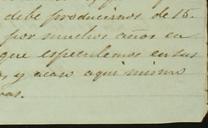 debe producirnos de 15.
por muchos años en
que especulemos en sus
y acaso aqui mismo